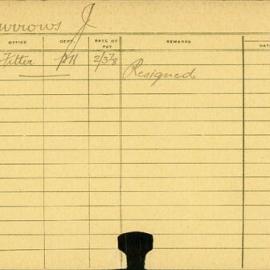 urrows J
OFFICE DEPT. RATE OF PAY REMARKS DAT
Fitter 2/3½
Resigned